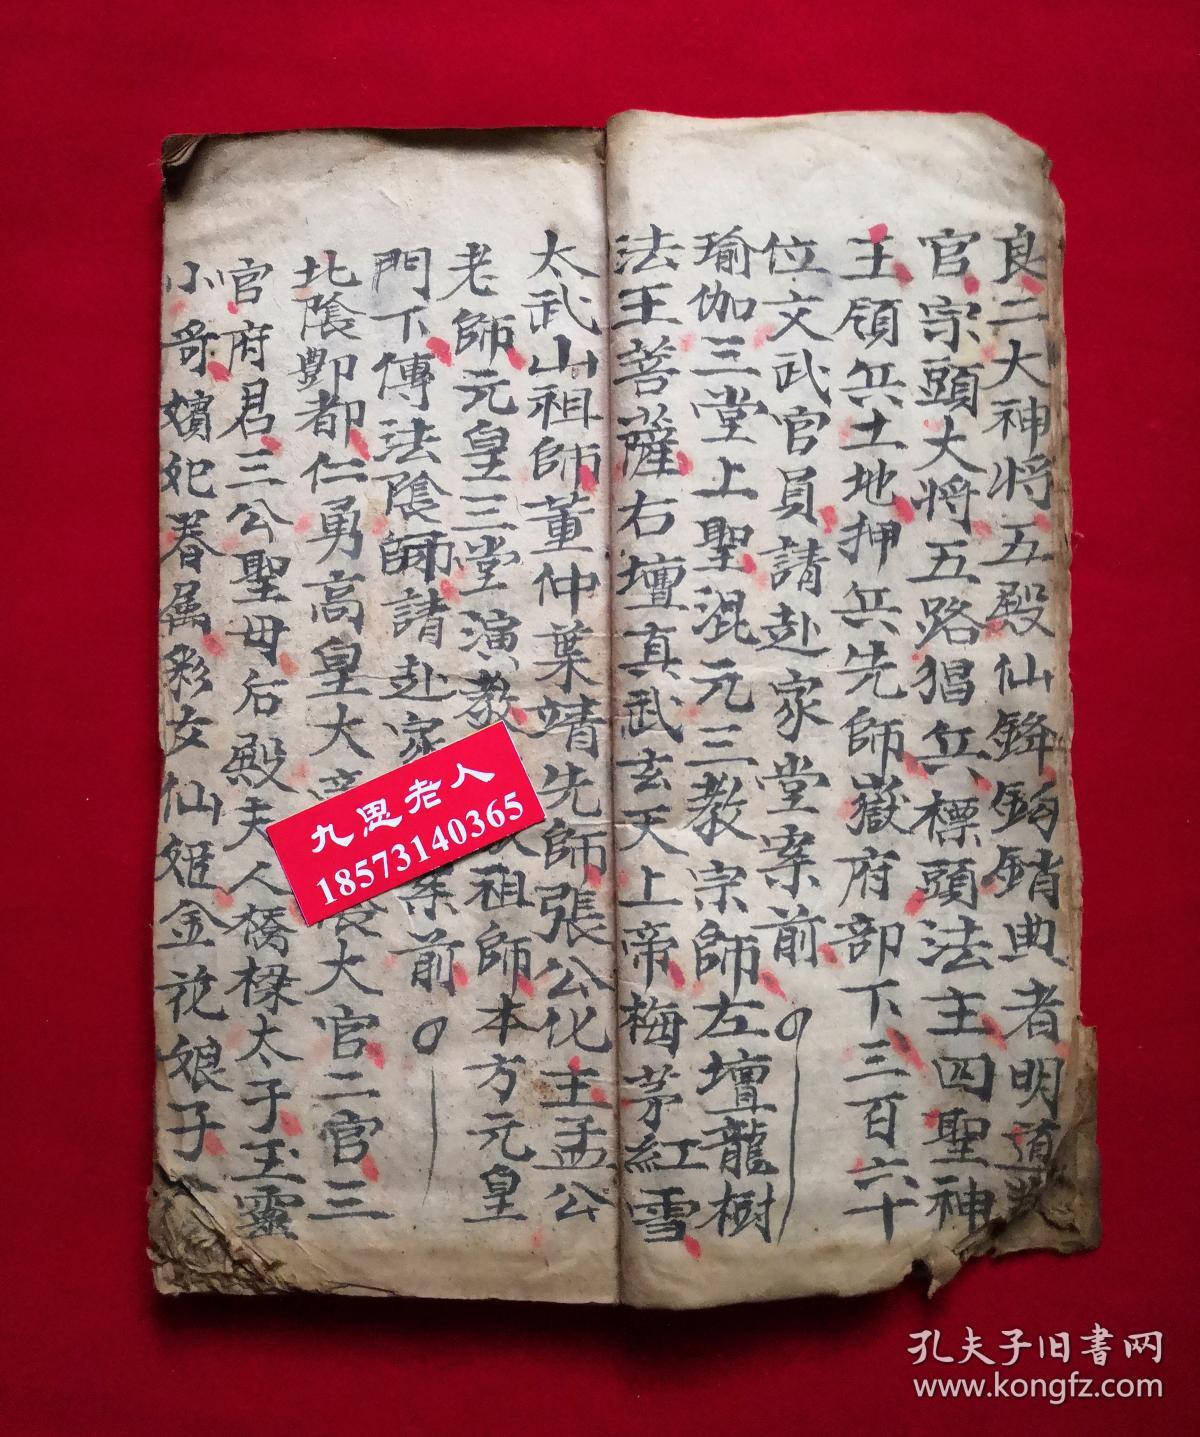 良二大神将五殿仙鋒鈎銷典者明道
官宗頭大将五路猖兵標頭法主四聖神
王領兵土地押兵先師嶽府部下三百六十
位文武官員請赴家堂案前
瑜伽三堂上聖混元三教宗師左壇龍樹
法王菩薩右壇真武玄天上帝梅茅紅雪
太武山祖師董仲葉靖先師張公化王孟公
老師元皇三堂演教祖師本方元皇
門下傳法陰師請赴家案前
北陰酆都仁勇高皇大大官二官三
官府君三公聖母后殿夫人橋樑太子玉靈
小哥嬪妃眷属彩女仙姬金花娘子
九思老人
18573140365
孔夫子旧书网
www.kongfz.com